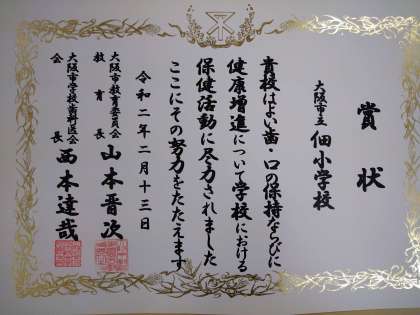 賞状
大阪市立 佃小学校
貴校はよい歯・口の保持ならびに
健康増進について学校における
保健活動に尽力されました
ここにその努力をたたえます
令和二年二月十三日
大阪市教育委員会
教育長 山本晋次
大阪市学校歯科医会
会長 西本達哉